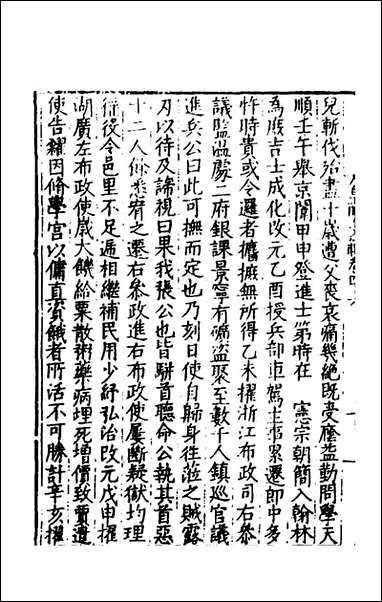 兒斬伐殆盡十歲遭父喪哀痛幾絕既受廕益勤問學天
順壬午舉京闈甲申登進士第時在　憲宗朝簡入翰林
為庶吉士成化改元乙酉授兵部車駕主事累遷郎中多
忤時貴或令邏者攟摭無所得乙未擢浙江布政司右參
議監溫處二府銀課景寧有礦盜聚至數千人鎮巡官議
進兵公曰此可撫而定也乃刻日使自歸身往蒞之賊露
刃以待及諦視曰果我張公也皆駢首聽命公執其首惡
十二人餘悉宥之遷右參政進右布政使屢斷疑獄均理
徭役令邑里不足遞相繼補民用少紓弘治改元戊申擢
湖廣左布政使歲大饑給粟散粥藥病埋死增價致賈遣
使告糴因脩學宮以傭直資餓者所活不可勝計辛亥擢